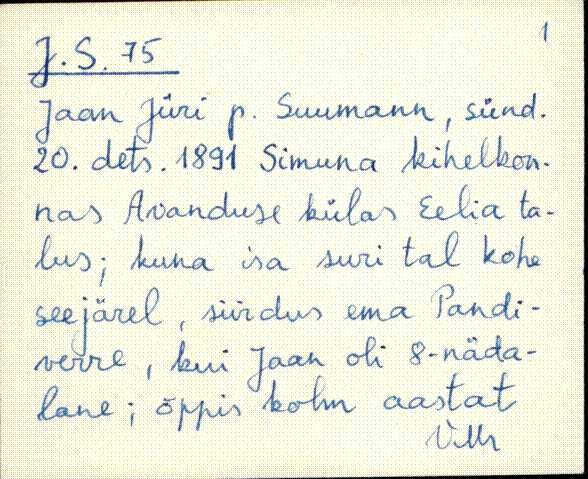 1
J. S. 75
Jaan Jüri p. Suumann, sünd.
20. dets. 1891 Simuna kihelkon-
nas Avanduse külas Eelia ta-
lus; kuna isa suri tal kohe
seejärel, siirdus ema Pandi-
verre, kui Jaan oli 8-näda-
lane; õppis kolm aastat